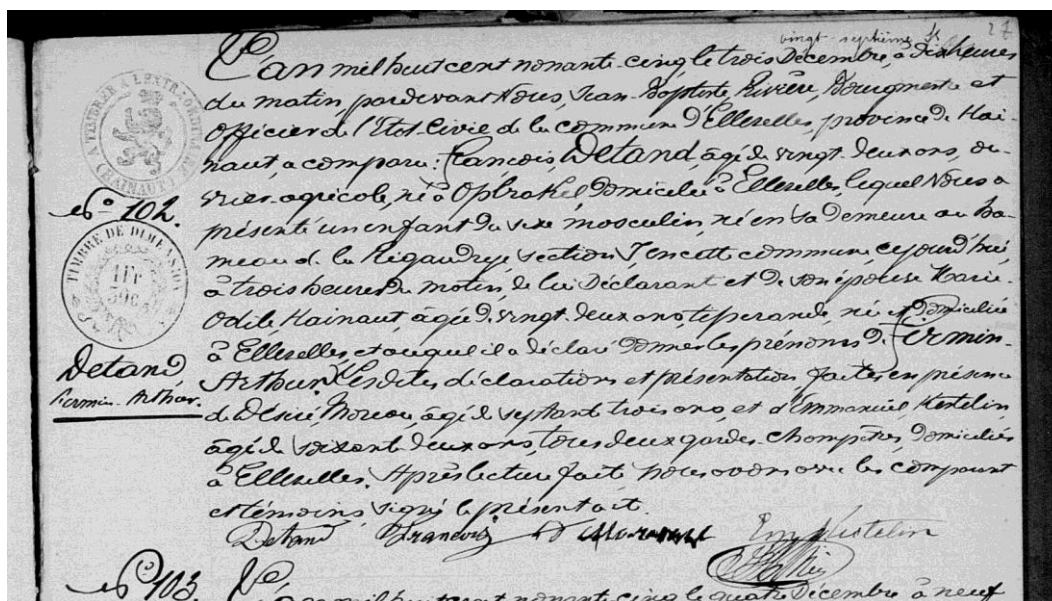 vingt-septième ft
27
L'an mil huit cent nonante-cinq le trois Décembre, à dix heures
du matin, pardevant Nous, Jean-Baptiste Rivière, Bourgmestre et
Officier de l'Etat-Civil de la commune d'Ellezelles, province de Hai-
naut, a comparu: François Detand, âgé de vingt-deux ans, ou-
vrier agricole, né à Opbrakel, domicilié à Ellezelles, lequel Nous a
présenté un enfant du sexe masculin, né en sa demeure au ha-
meau de la Rigaudrye section J en cette commune, cejourd'hui
à trois heures du matin, de lui Déclarant et de son épouse Marie-
Odile Hainaut, âgée de vingt-deux ans, tisserande, née et domiciliée
à Ellezelles, et auquel il a déclaré donner les prénoms de Fermin-
Arthur. Lesdites déclarations et présentation faites en présence
de Désiré Moreau, âgé de septante trois ans, et d'Emmanuel Hostelin,
âgé de soixante deux ans, tous deux gardes-champêtres, domiciliés
à Ellezelles. Après lecture faite Nous avons avec les comparant
et témoins, signé le présent acte.
Detand François D Moreau Em Hostelin
A TIMBRER A L'EXTRAORDINAIRE
(HAINAUT)
N° 102.
TIMBRE DE DIMENSION
1 FR
Detand
Fermin-Arthur.
N° 103
L'an mil huit cent nonante-cinq le quatre Décembre à neuf